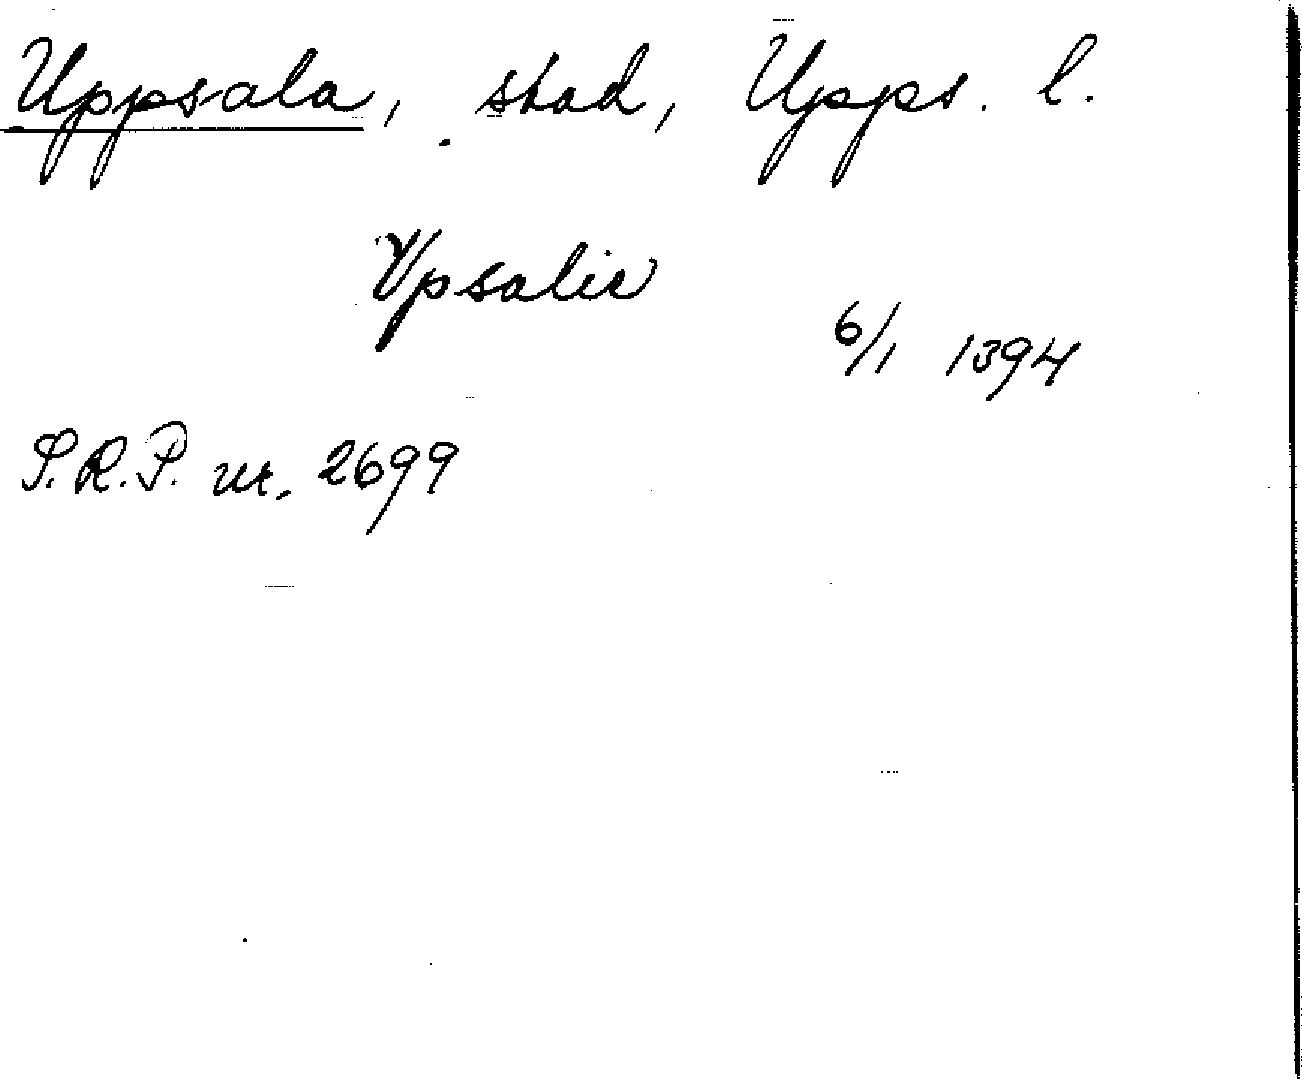 Uppsala, stad, Upps. l.
Vpsalis
6/1 1394
S.R.P. nr. 2699